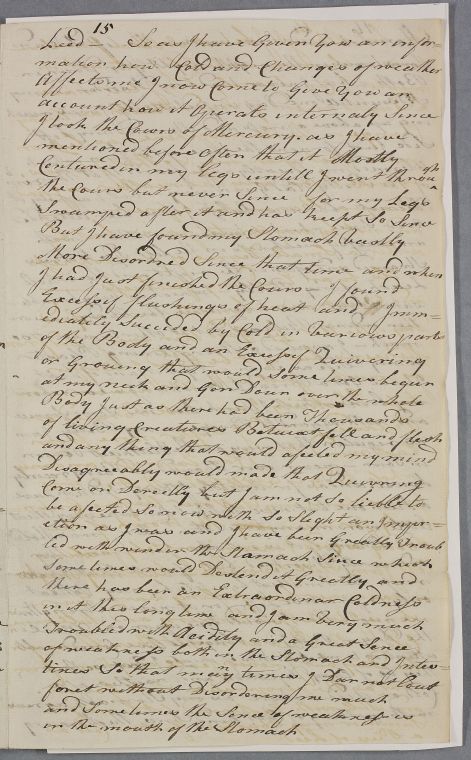 15
So as I have Given Yow an infor-
mation how Cold and Changes of weather
Affects me I now Come to Give Yow an
account how it Operats internaly Since
I took the Cours of Mercury. as I have
mentioned before Often that it Mostly
Contured in my legs untill I went through
the Cours but never Since for my Legs
Swamped after it and has keept So Since
But I have found my Stomach vastly
More Disordred Since that time and when
I had Just finished the Cours I found
Excessif flushings of heat and Imm=
ediatily Succided by Cold in various parts
of the Body and an Excessif Quivering
or Groving that would some times begun
at my neck and Gon Doun over the whole
Body Just as there had been Thousands
of living Creatures Betwixt fell and flesh
and any thing that would afected my mind
Disagreeably would made that Quivring
Come on Derectly but I am not So lieble to
be afected So now with So Slight an Impr-
etion as I was and I have been Greatly Troub
led with wind in the Stomach Since which
Some times would Destend it Greatly and
there has been an Extraordinar Coldness
in it this long time and I am very much
Troubled with Acidity and a Great Sence
of weakness both in the Stomach and Intes-
tines So that many times I Dar not
without Disordering me much
and Some times the Sence of weakness is
in the mouth of the Stomach